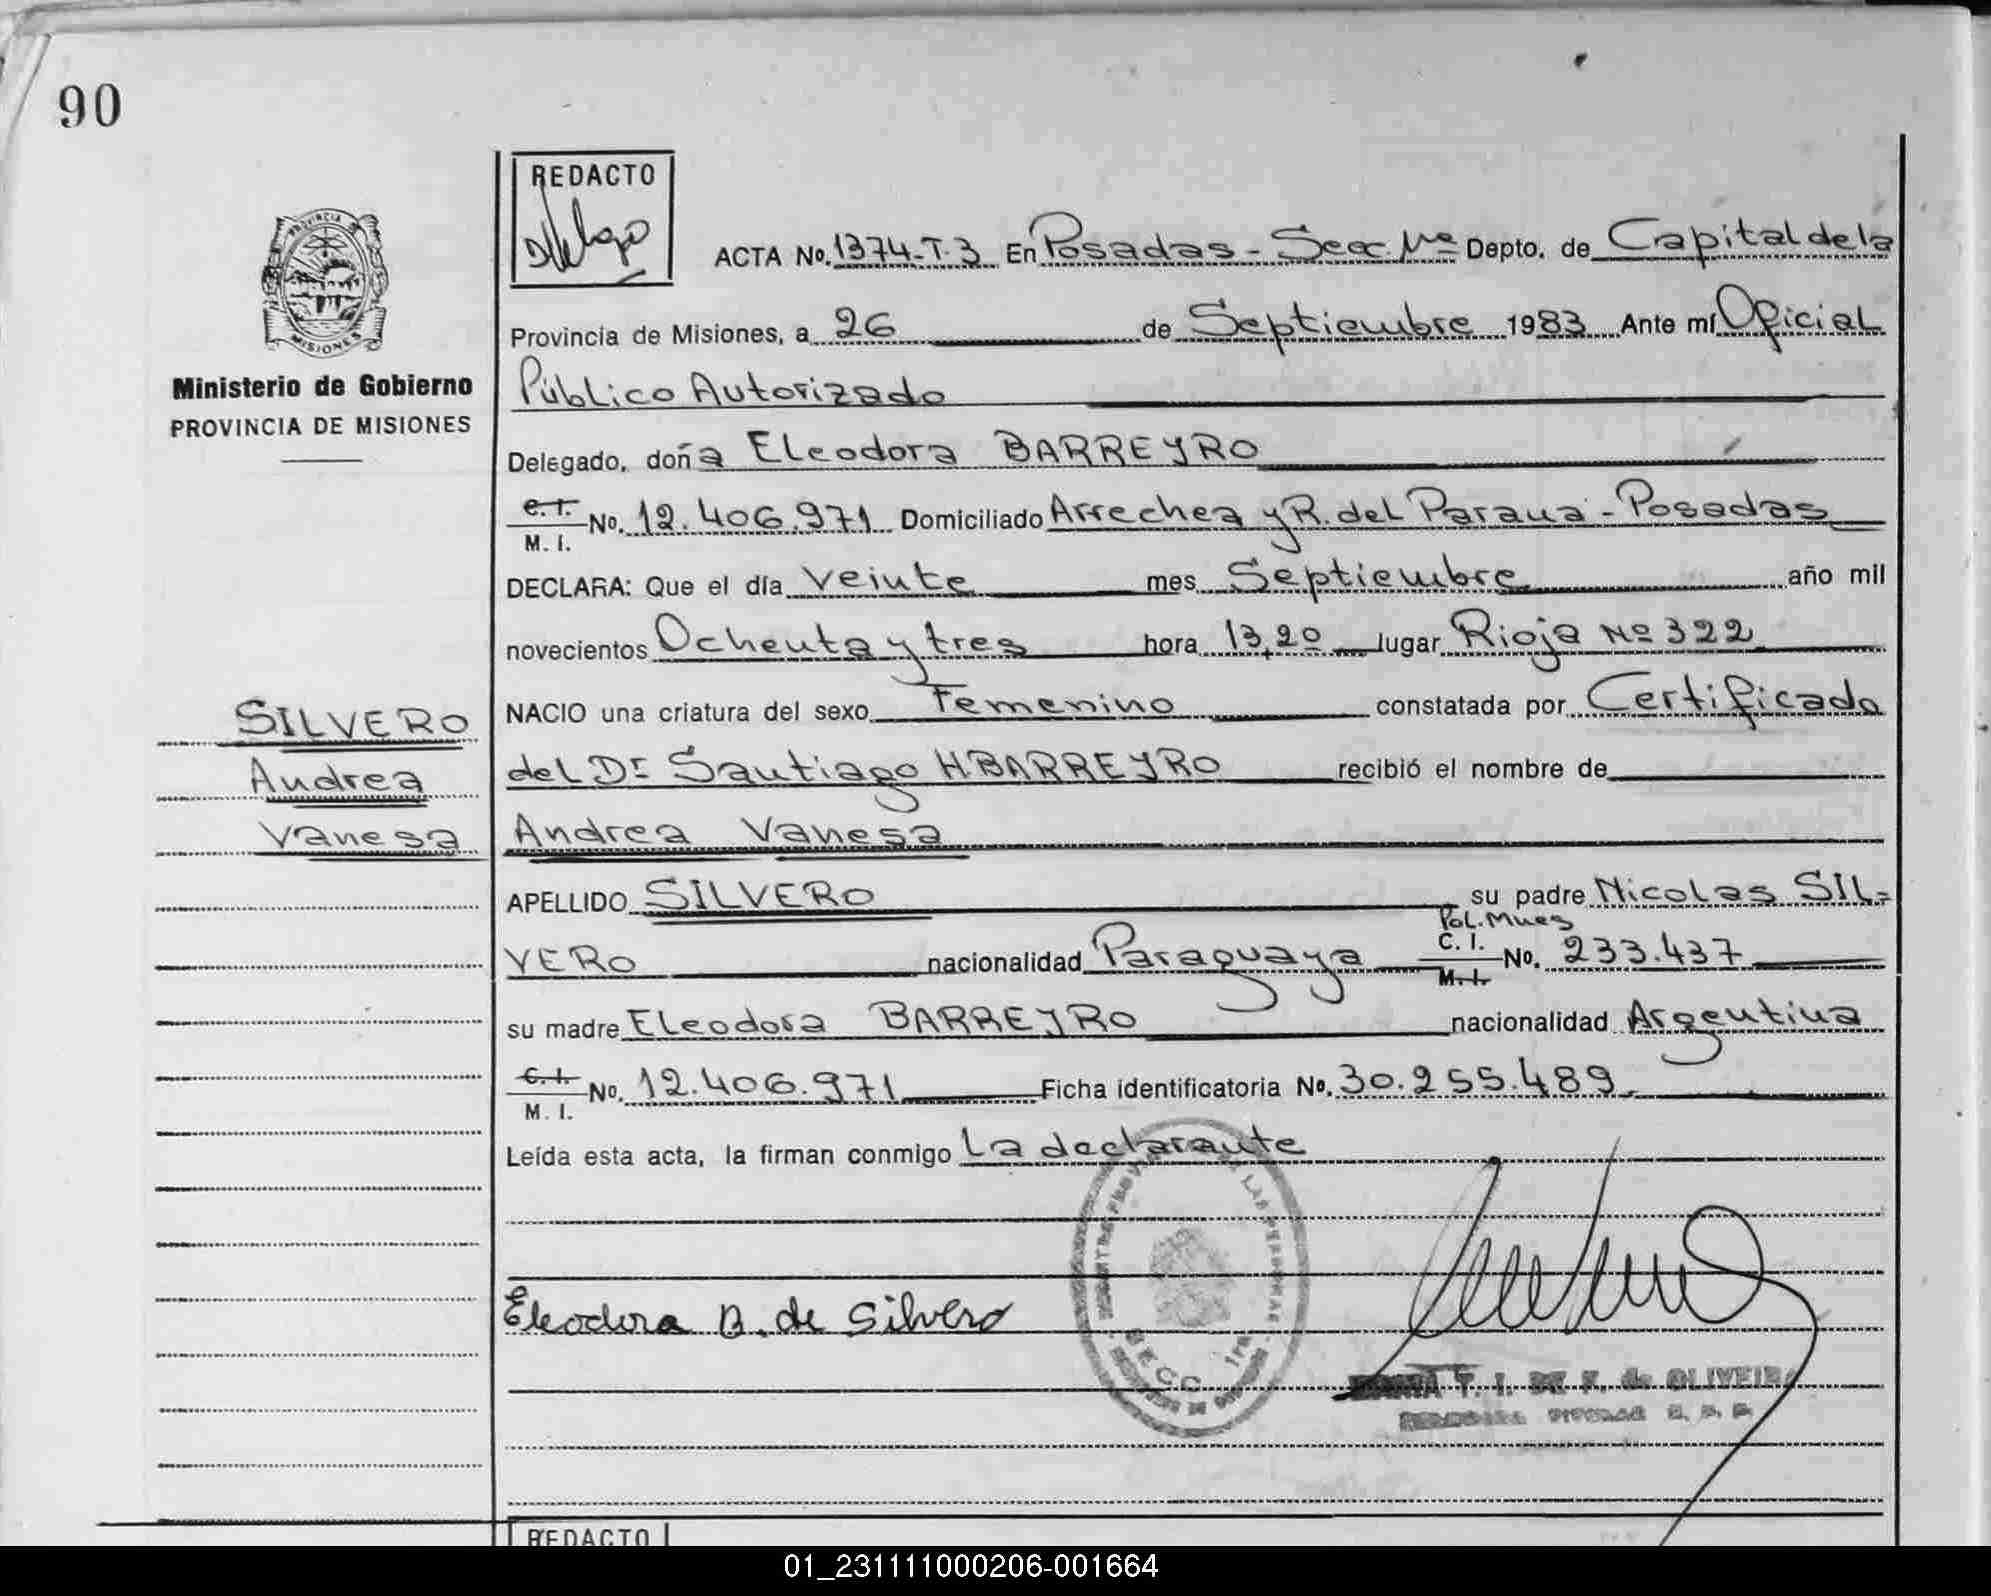 90
REDACTO
PROVINCIA
MISIONES
ACTA No. 1374-T.3 En Posadas - Secc. 1ra Depto. de Capital de la
Provincia de Misiones, a 26 de Septiembre 1983 Ante mí Oficial
Ministerio de Gobierno
PROVINCIA DE MISIONES
Público Autorizado
Delegado, doña Eleodora BARREYRO
C.I.
M. I. No. 12.406.971 Domiciliado Arrechea y R. del Paraná - Posadas
DECLARA: Que el día Veinte mes Septiembre año mil
novecientos Ochenta y tres hora 13,20 lugar Rioja Nº 322
SILVERO
Andrea
Vanesa
NACIO una criatura del sexo Femenino constatada por Certificado
del Dr Santiago H BARREYRO recibió el nombre de
Andrea Vanesa
APELLIDO SILVERO su padre Nicolas SIL=
VERO nacionalidad Paraguaya Pol. Mnes C. I. M.I. No. 233.437
su madre Eleodora BARREYRO nacionalidad Argentina
C.I.
M. I. No. 12.406.971 Ficha identificatoria No. 30.255.489
Leída esta acta, la firman conmigo La declarante
LAS PERSONAS
Eleodora B. de Silvero
T. I. DE F. de OLIVEIRA
REDACTO
01_231111000206-001664